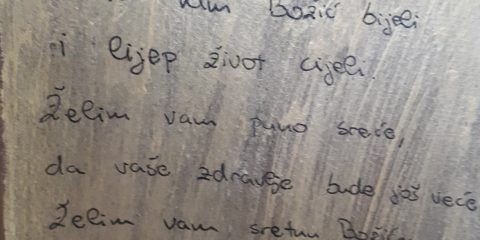 vam Božić bijeli
i lijep život cijeli.
Želim vam puno sreće,
da vaše zdravlje bude još veće
Želim vam sretan Božić